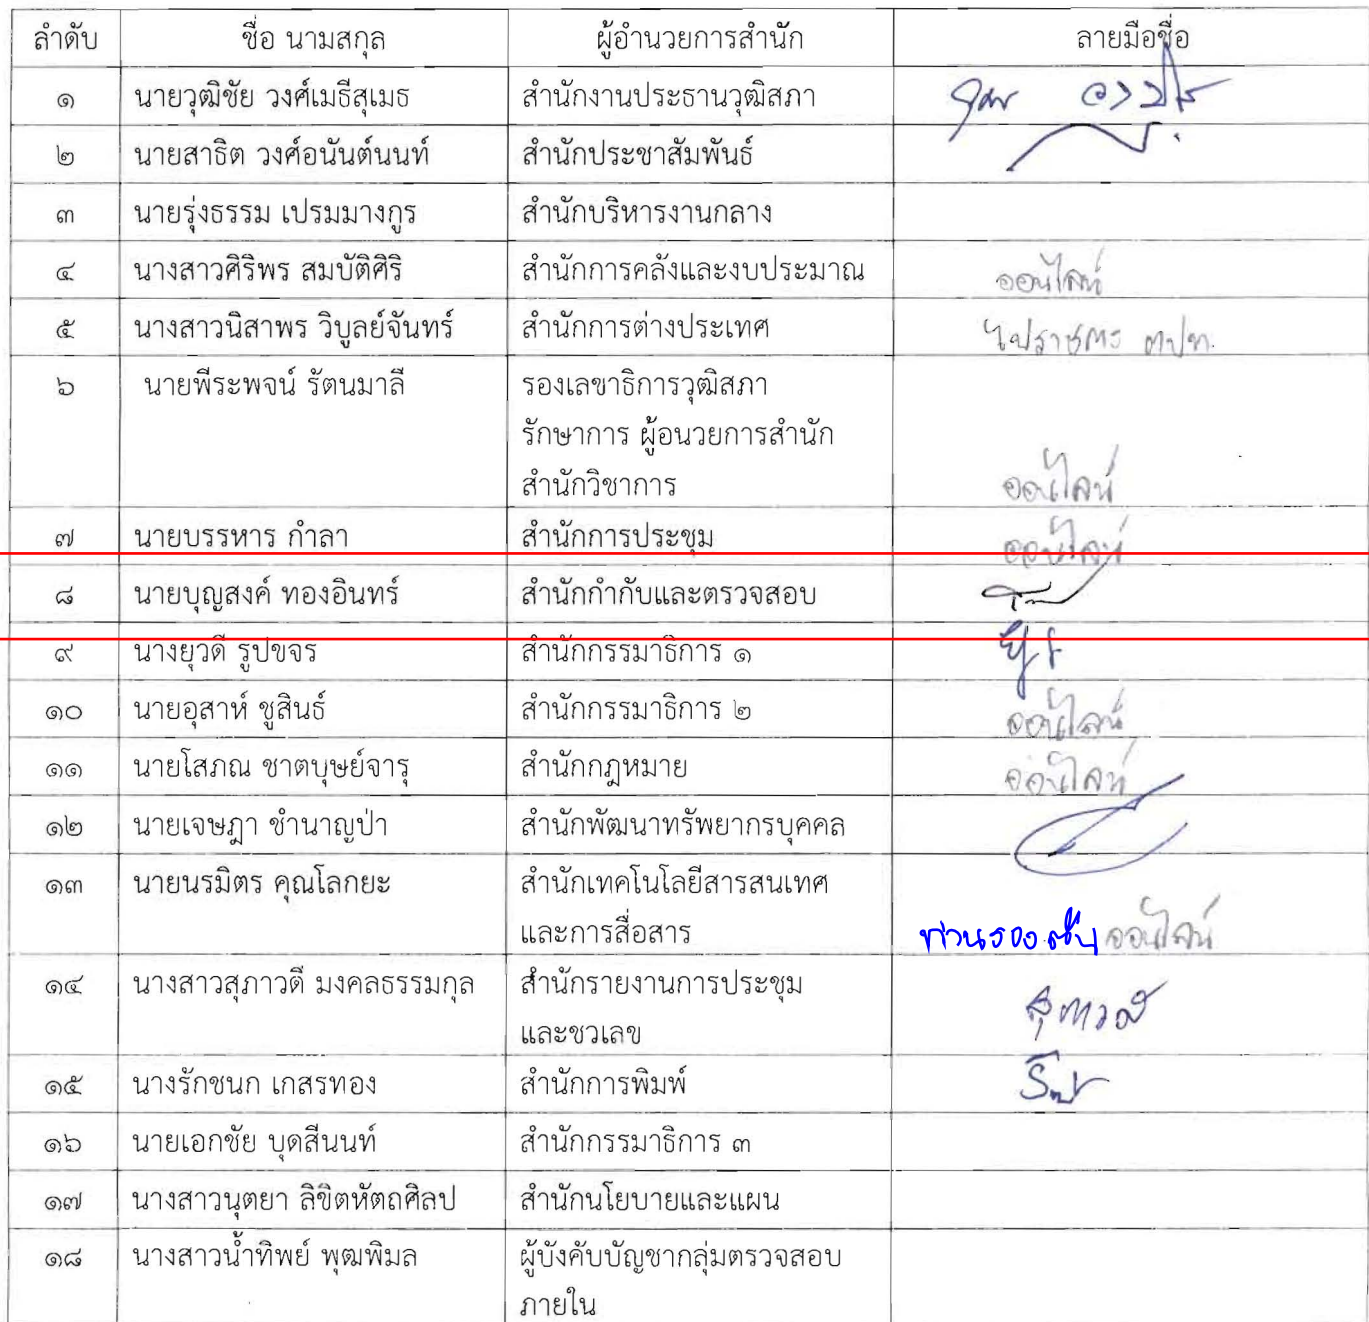 ลำดับ ชื่อ นามสกุล ผู้อำนวยการสำนัก ลายมือชื่อ
๑ นายวุฒิชัย วงศ์เมธีสุเมธ สำนักงานประธานวุฒิสภา
๒ นายสาธิต วงศ์อนันต์นนท์ สำนักประชาสัมพันธ์
๓ นายรุ่งธรรม เปรมมางกูร สำนักบริหารงานกลาง
๔ นางสาวศิริพร สมบัติศิริ สำนักการคลังและงบประมาณ ออนไลน์
๕ นางสาวนิสาพร วิบูลย์จันทร์ สำนักการต่างประเทศ ไปราชการ ตปท.
๖ นายพีระพจน์ รัตนมาลี รองเลขาธิการวุฒิสภา
รักษาการ ผู้อนวยการสำนัก
สำนักวิชาการ ออนไลน์
๗ นายบรรหาร กำลา สำนักการประชุม ออนไลน์
๘ นายบุญสงค์ ทองอินทร์ สำนักกำกับและตรวจสอบ
๙ นางยุวดี รูปขจร สำนักกรรมาธิการ ๑
๑๐ นายอุสาห์ ชูสินธ์ สำนักกรรมาธิการ ๒ ออนไลน์
๑๑ นายโสภณ ชาตบุษย์จารุ สำนักกฎหมาย ออนไลน์
๑๒ นายเจษฎา ชำนาญป่า สำนักพัฒนาทรัพยากรบุคคล
๑๓ นายนรมิตร คุณโลกยะ สำนักเทคโนโลยีสารสนเทศ
และการสื่อสาร ท่านรอง ออนไลน์
๑๔ นางสาวสุภาวดี มงคลธรรมกุล สำนักรายงานการประชุม
และชวเลข สุภาวดี
๑๕ นางรักชนก เกสรทอง สำนักการพิมพ์
๑๖ นายเอกชัย บุดสีนนท์ สำนักกรรมาธิการ ๓
๑๗ นางสาวนุตยา ลิขิตหัตถศิลป สำนักนโยบายและแผน
๑๘ นางสาวน้ำทิพย์ พุฒพิมล ผู้บังคับบัญชากลุ่มตรวจสอบ
ภายใน